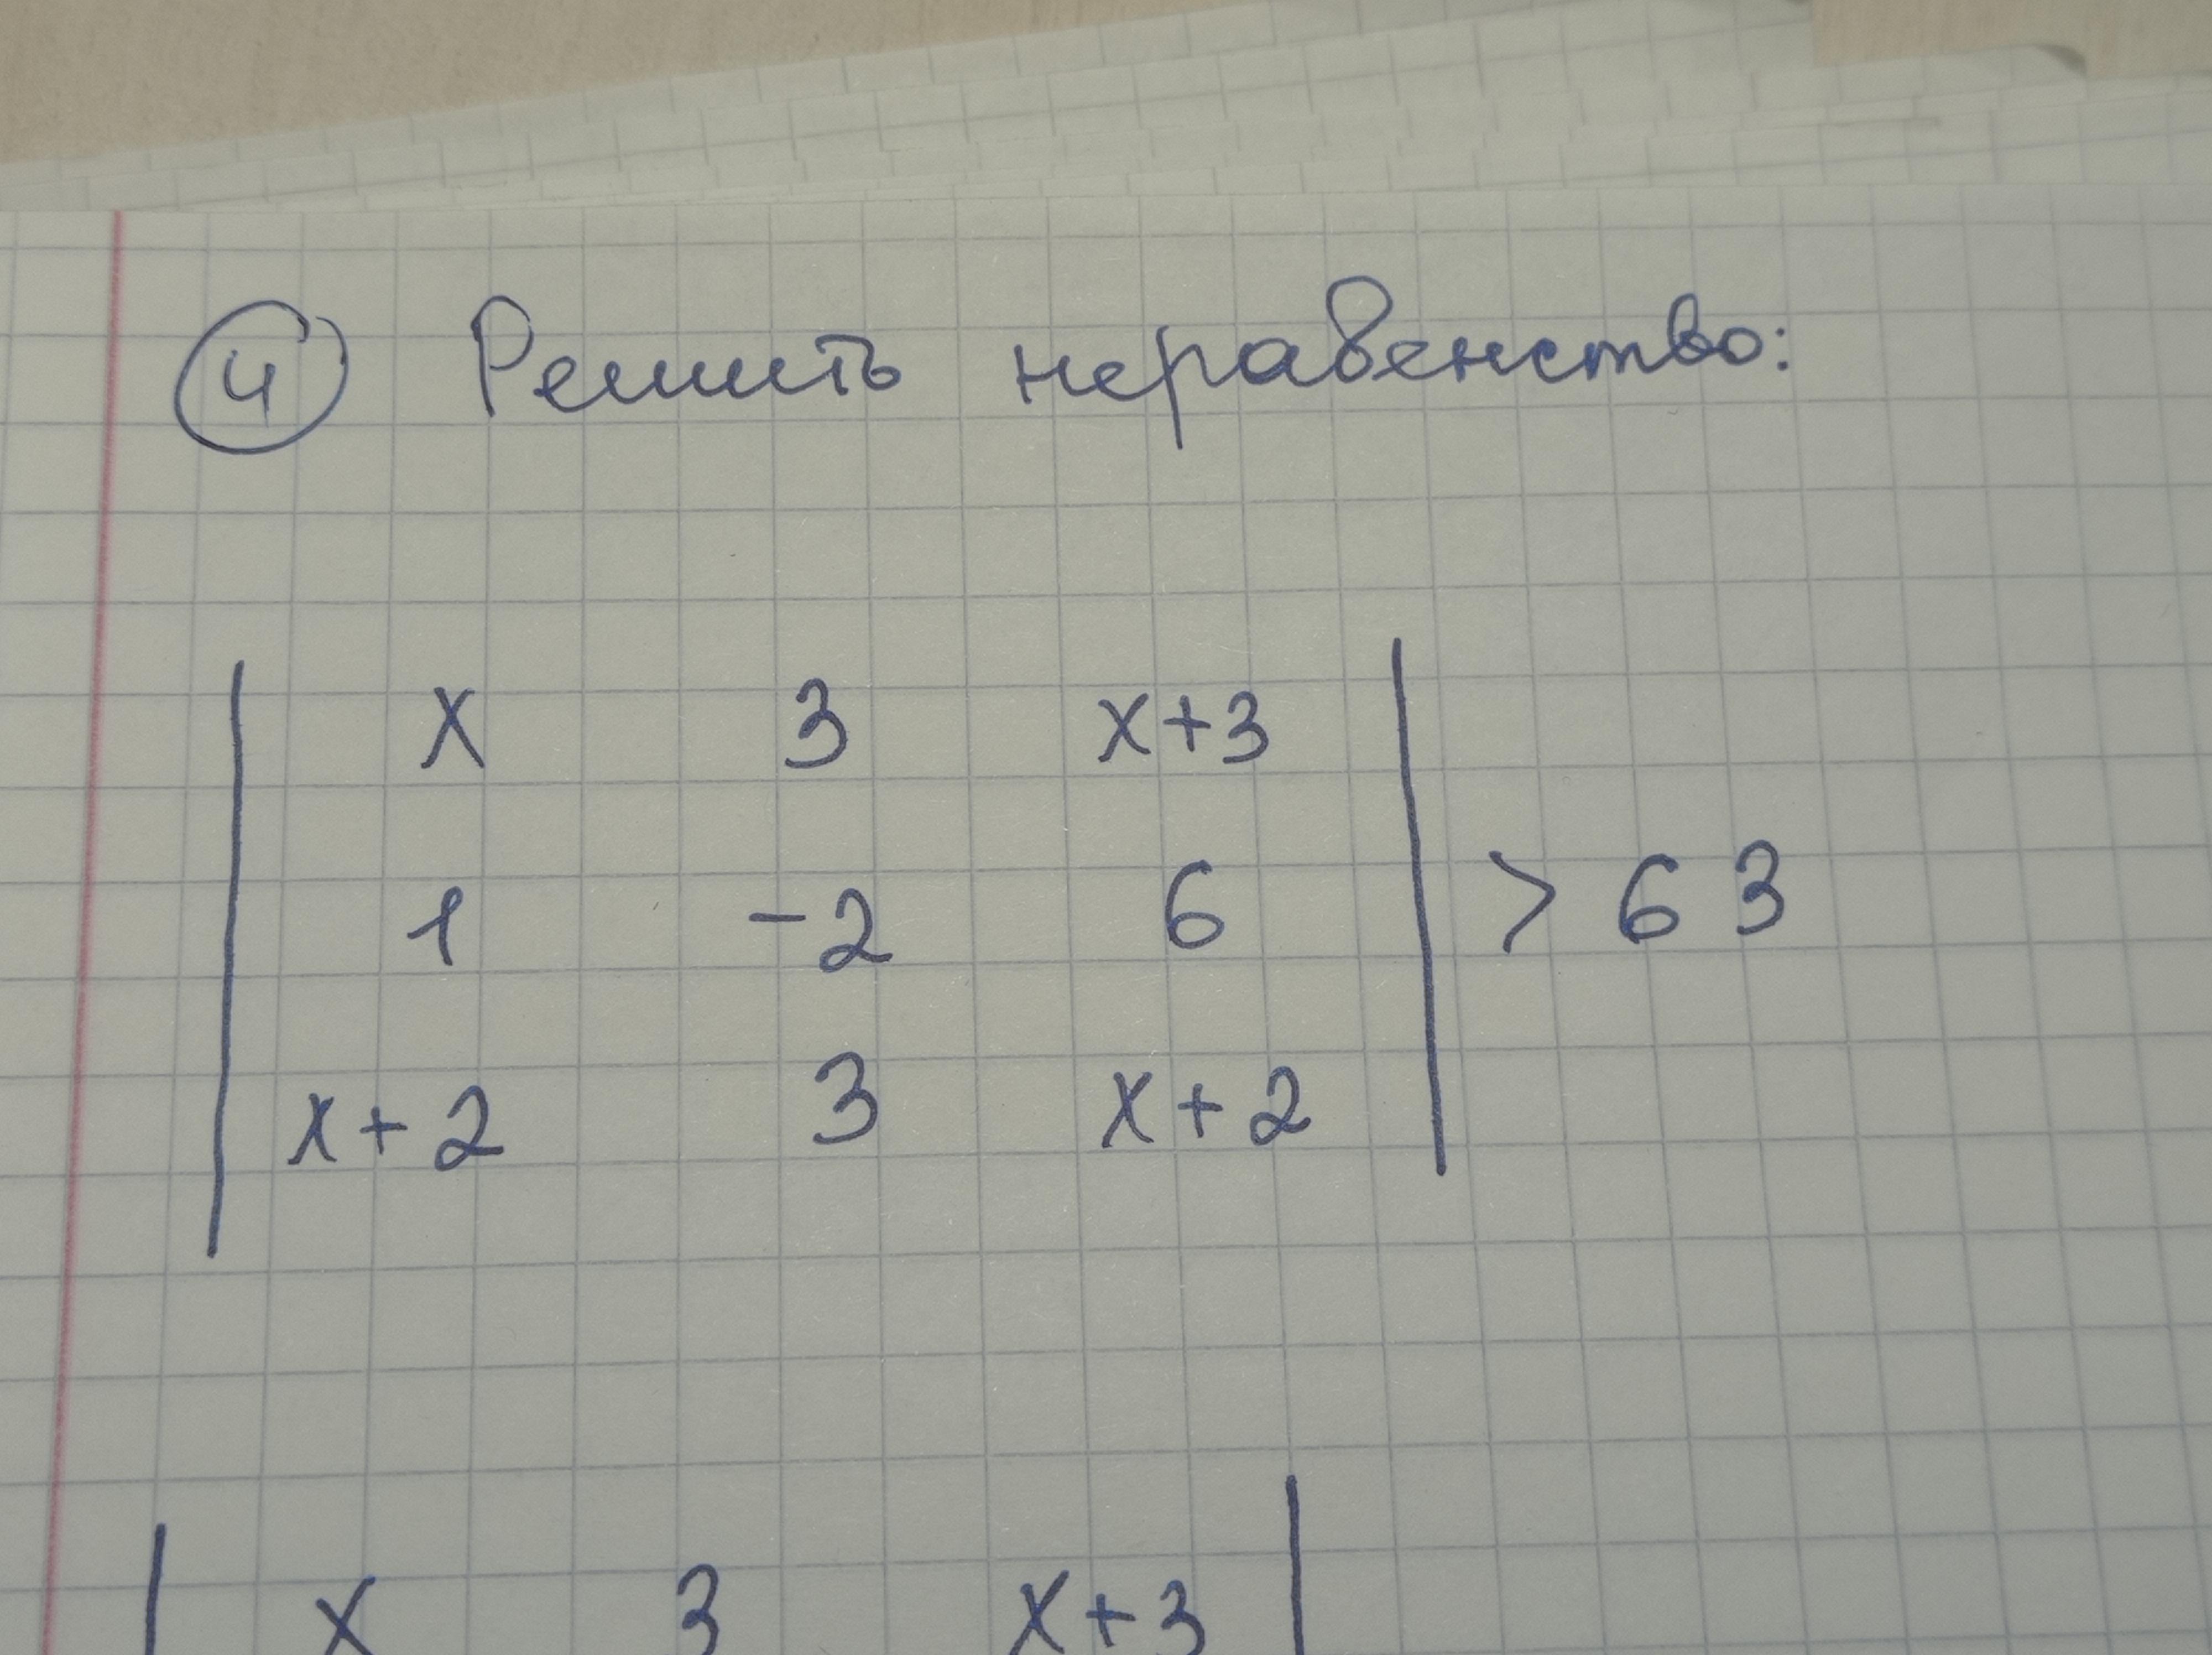 4 Решить неравенство:
| x 3 x+3 |
| 1 -2 6 | > 63
| x+2 3 x+2 |
| x 3 x+3 |